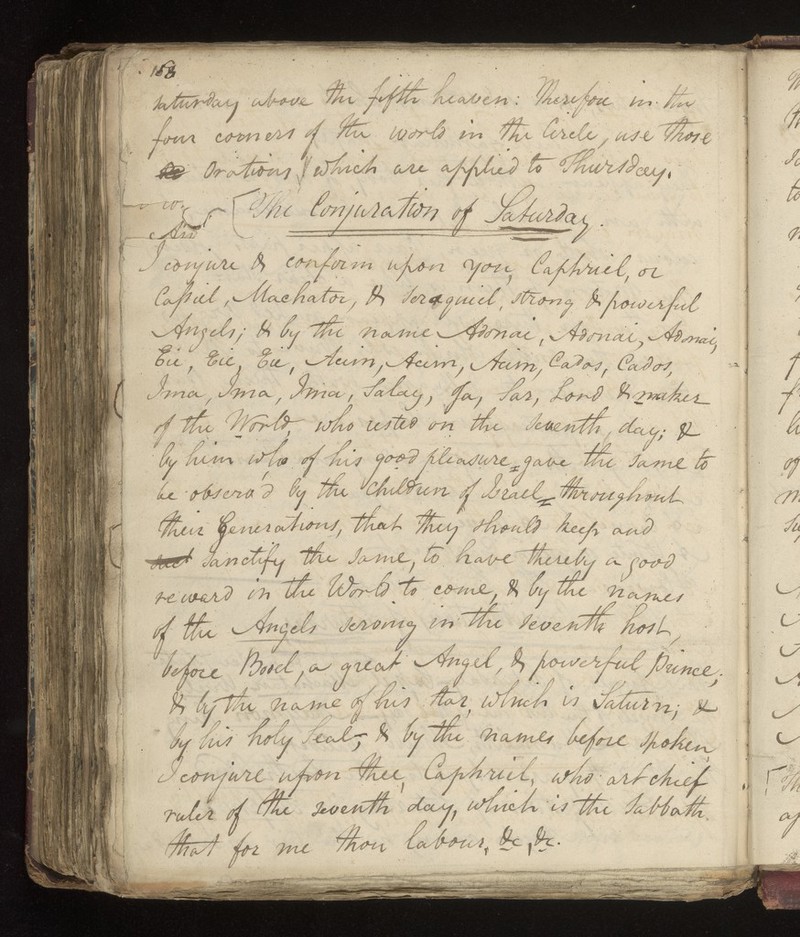 158
Saturday above the fifth heaven: Therefore in the
four corners of the world in the Circle, use those
Orations which are applied to Thursday.
The Conjuration of Saturday.
I conjure & confirm upon you, Caphriel, or
Cassiel, Machator, & Seraquiel, strong & powerful
Angels; & by the name Adonai, Adonai, Adonai,
Eie, Eie, Eie, Acim, Acim, Acim, Cados, Cados,
Ima, Ima, Ima, Salay, Ja, Sar, Lord & maker
of the World, who rested on the seventh, day; &
by him who of his good pleasure gave the same to
be observ'd by the Children of Israel throughout
their Generations, that they should keep and
sanctify the same, to have thereby a good
reward in the World to come, & by the names
of the Angels serving in the seventh host,
before Booel, a great Angel, & powerful Prince;
& by the name of his star, which is Saturn; &
by his holy Seal, & by the names before spoken
I conjure upon thee, Caphriel, who art chief
ruler of the seventh day, which is the Sabbath.
that for me thou labour, &c, &c.